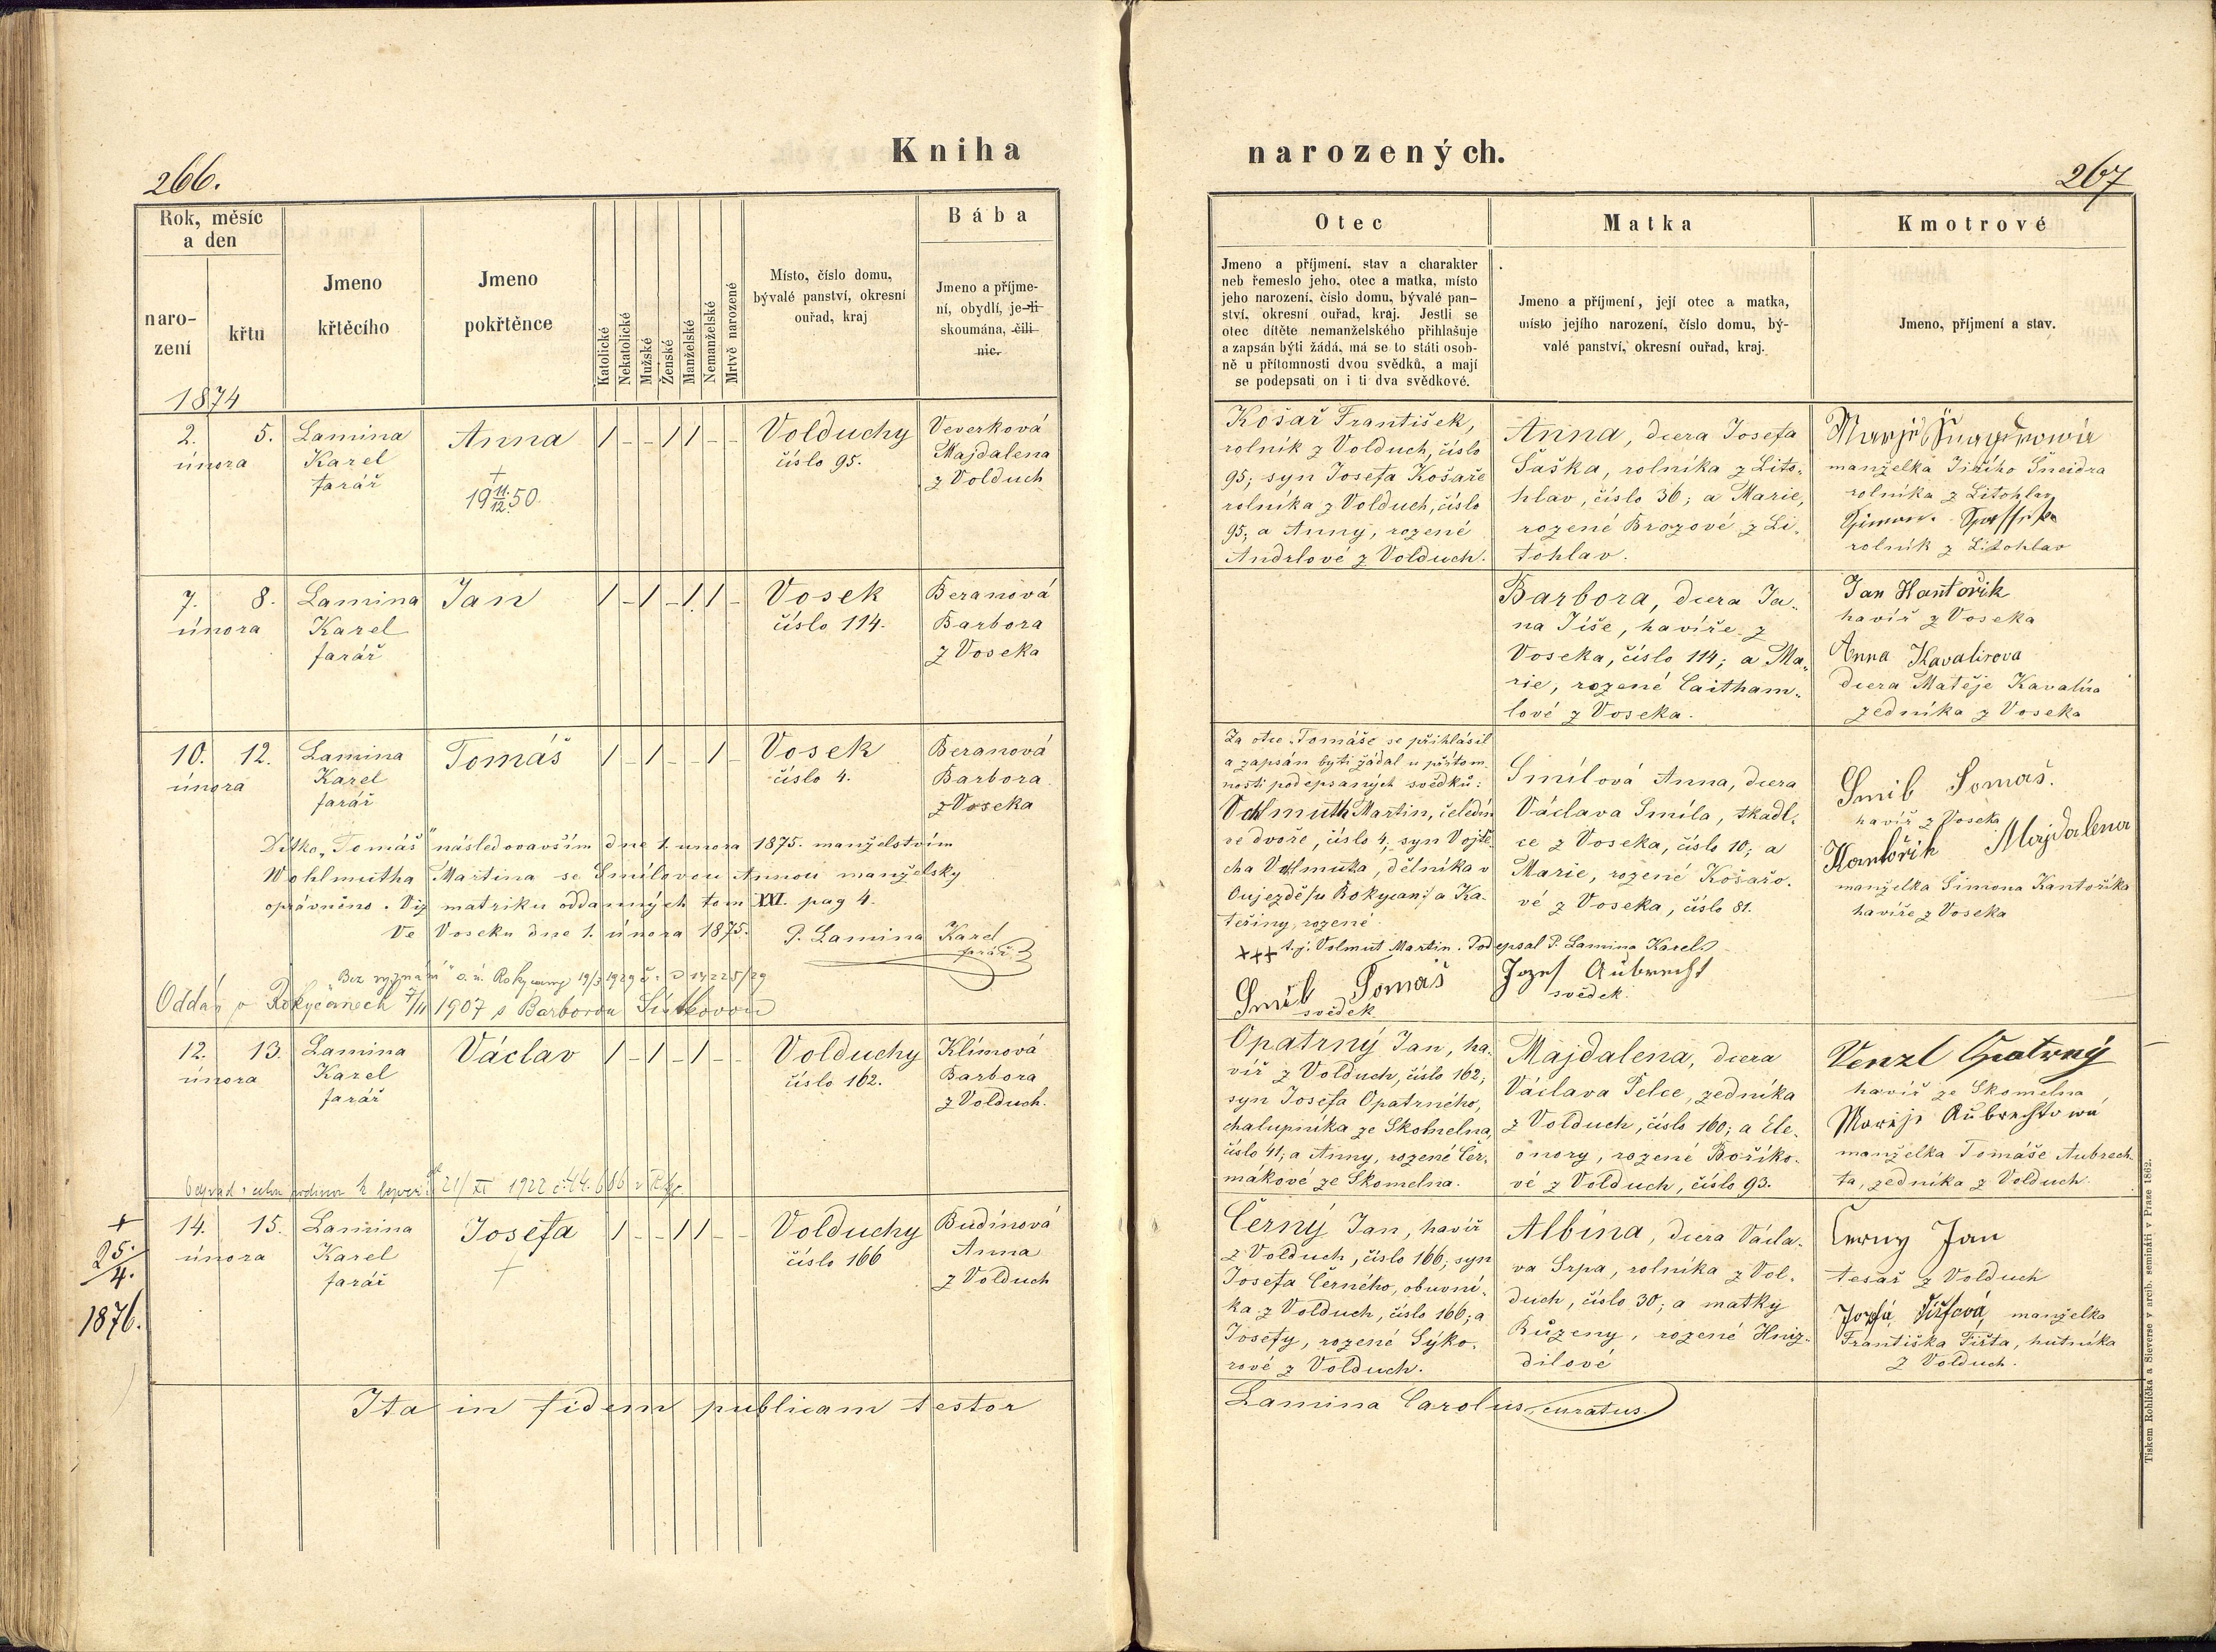 266.
Kniha
Rok, měsíc
a den
naro-
zení
křtu
Jmeno
křtěcího
Jmeno
pokřtěnce
Katolické
Nekatolické
Mužské
Ženské
Manželské
Nemanželské
Mrtvě narozené
Místo, číslo domu,
bývalé panství, okresní
ouřad, kraj
Bába
Jmeno a příjme-
ní, obydlí, je-li
skoumána, čili
nic.
1874
2. 5. Lamina Anna 1 - - 1 1 - - Volduchy Veverková
února Karel číslo 95. Majdalena
farář z Volduch
+
19 11./12. 50.
7. 8. Lamina Jan 1 - 1 - 1. 1 - Vosek Beranová
února Karel číslo 114. Barbora
farář z Voseka
10. 12. Lamina Tomáš 1 - 1 - - 1 - Vosek Beranová
února Karel číslo 4. Barbora
farář z Voseka
Dítko „Tomáš" následovavším dne 1. února 1875. manželstvím
Wohlmutha Martina se Smílovou Annou manželsky
oprávněno. Viz matriku oddaných tom XXI. pag 4.
Ve Voseku dne 1. února 1875. P. Lamina Karel
farář
„Bez vyznání" o. ú. Rokycany 19/3 1929 č.
Oddán v Rokycanech 7/II 1907 s Barborou
12. 13. Lamina Václav 1 - 1 - 1 - - Volduchy Klímová
února Karel číslo 162. Barbora
farář z Volduch.
21/XI 1922
+
25./4.
1876.
14. 15. Lamina Josefa 1 - - 1 1 - - Volduchy Budínová
února Karel číslo 166 Anna
farář z Volduch
+
Ita in fidem publicam testor
narozených.
267
Otec
Jmeno a příjmení, stav a charakter
neb řemeslo jeho, otec a matka, místo
jeho narození, číslo domu, bývalé pan-
ství, okresní ouřad, kraj. Jestli se
otec dítěte nemanželského přihlašuje
a zapsán býti žádá, má se to státi osob-
ně u přítomnosti dvou svědků, a mají
se podepsati on i ti dva svědkové.
Matka
Jmeno a příjmení, její otec a matka,
místo jejího narození, číslo domu, bý-
valé panství, okresní ouřad, kraj.
Kmotrové
Jmeno, příjmení a stav.
Košař František,
rolník z Volduch, číslo
95; syn Josefa Košaře
rolníka z Volduch, číslo
95; a Anny, rozené
Andrlové z Volduch.
Anna, dcera Josefa
Šaška, rolníka z Lito-
hlav, číslo 36; a Marie,
rozené Brozové z Li-
tohlav.
manželka Jiřího Šneidra
rolníka z Litohlav
rolník z Litohlav
Barbora, dcera Ja-
na Jíše, havíře z
Voseka, číslo 114; a Ma-
rie, rozené Caitham-
lové z Voseka.
Jan Hantořik
havíř z Voseka
Anna Kavalirova
dcera Matěje Kavalíra
zedníka z Voseka
Za otce „Tomáše se přihlásil
a zapsán býti žádal u přítom-
nosti podepsaných svědků:
Volmuth Martin, čeledín
ve dvoře, číslo 4, syn Vojtě-
cha Volmuta, dělníka v
Oujezdě/u Rokycan/ a Ka-
teřiny, rozené
+++ t.j. Volmut Martin. Podepsal P. Lamina Karel.
Smíl Tomáš
svědek.
Jozef Aubrecht
svědek.
Smílová Anna, dcera
Václava Smíla, tkadl-
ce z Voseka, číslo 10; a
Marie, rozené Košařo-
vé z Voseka, číslo 81.
Smil Tomaš.
havíř z Voseka
Kantořik Majdalena
manželka Šimona Kantoříka
havíře z Voseka
Opatrný Jan, ha-
víř z Volduch, číslo 162;
syn Josefa Opatrného,
chalupníka ze Skomelna,
číslo 41; a Anny, rozené Čer-
mákové ze Skomelna.
Majdalena, dcera
Václava Pelce, zedníka
z Volduch, číslo 160; a Ele-
onory, rozené Boříko-
vé z Volduch, číslo 93.
Venzl Opatrný
havíř ze Skomelna
Marije Aubrechtowá
manželka Tomáše Aubrech-
ta, zedníka z Volduch.
Černý Jan, havíř
z Volduch, číslo 166; syn
Josefa Černého, obuvní-
ka z Volduch, číslo 166; a
Josefy, rozené Sýko-
rové z Volduch.
Albína, dcera Václa-
va Srpa, rolníka z Vol-
duch, číslo 30; a matky
Růženy, rozené Hniz-
dilové
Černy Jan
tesař z Volduch
Fišfová, manželka
Františka Fišta, hutníka
z Volduch.
Lamina Carolus curatus
Tiskem Rohlíčka a Sieverse v arcib. semináři v Praze 1862.